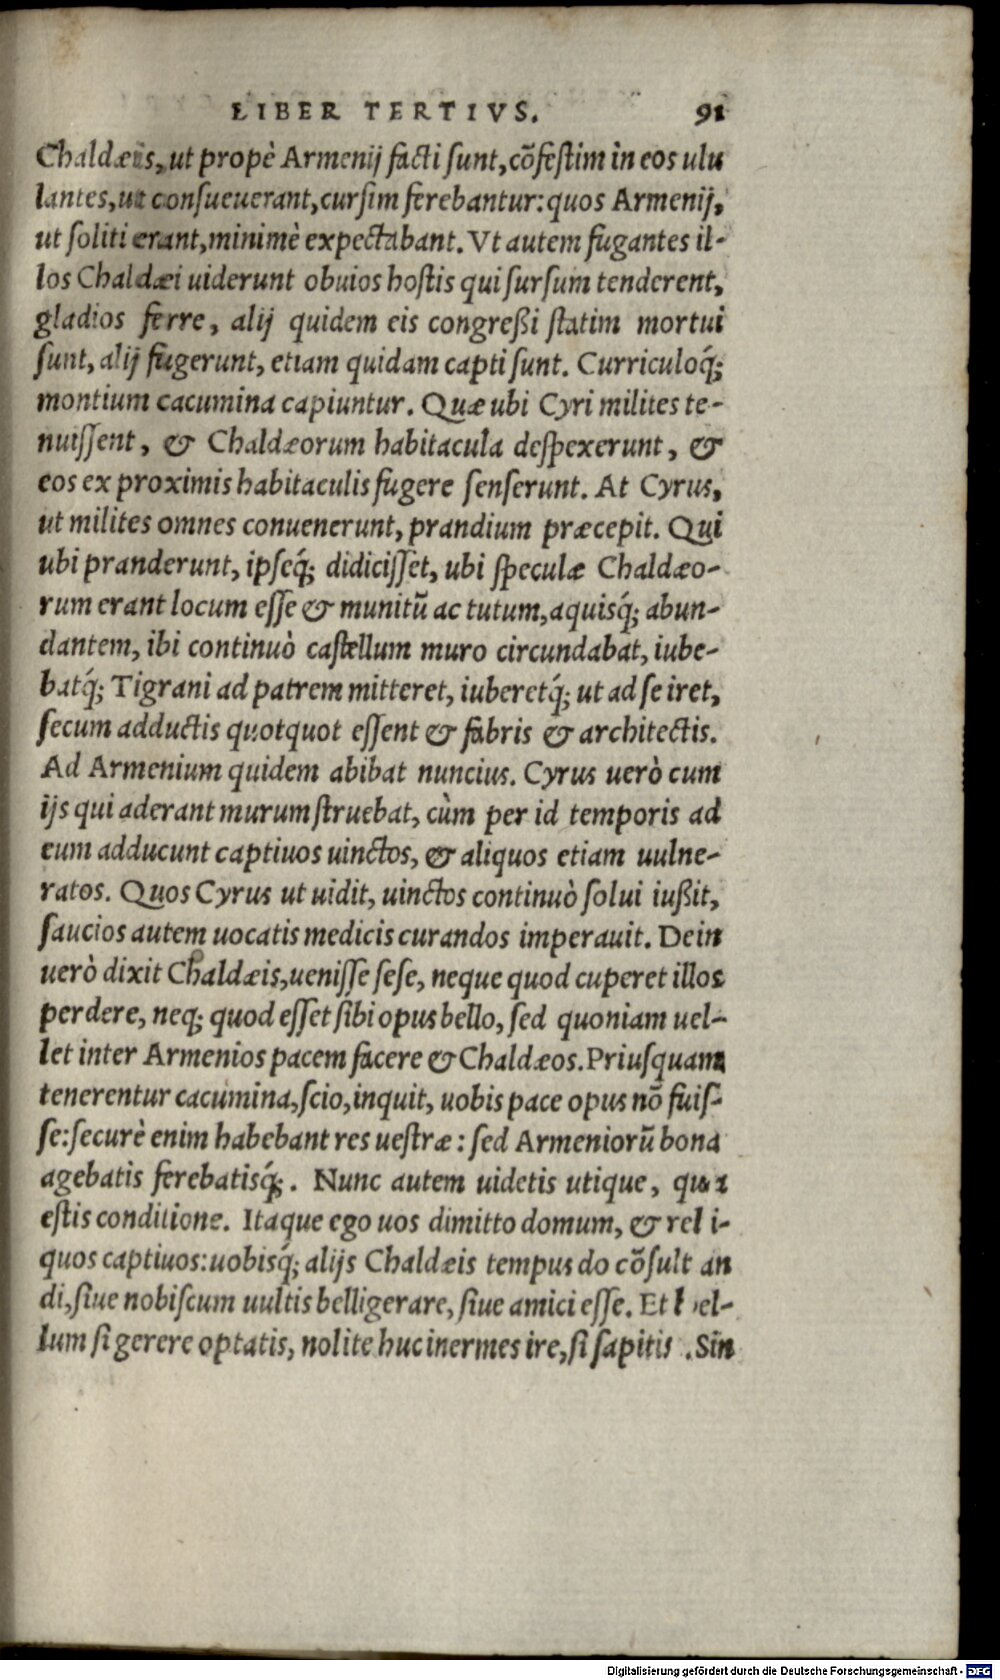 LIBER TERTIVS. 91
Chaldæis, ut propè Armenij facti sunt, cõfestim in eos ulu
lantes, ut consueuerant, cursim ferebantur: quos Armenij,
ut soliti erant, minimè expectabant. Vt autem fugantes il-
los Chaldæi uiderunt obuios hostis qui sursum tenderent,
gladios ferre, alij quidem eis congreßi statim mortui
sunt, alij fugerunt, etiam quidam capti sunt. Curriculoq́;
montium cacumina capiuntur. Quæ ubi Cyri milites te-
nuissent, & Chaldæorum habitacula despexerunt, &
eos ex proximis habitaculis fugere senserunt. At Cyrus,
ut milites omnes conuenerunt, prandium præcepit. Qui
ubi pranderunt, ipseq́; didicisset, ubi speculæ Chaldæo-
rum erant locum esse & munitũ ac tutum, aquisq́; abun-
dantem, ibi continuò castellum muro circundabat, iube-
batq́; Tigrani ad patrem mitteret, iuberetq́; ut ad se iret,
secum adductis quotquot essent & fabris & architectis.
Ad Armenium quidem abibat nuncius. Cyrus uerò cum
ijs qui aderant murum struebat, cùm per id temporis ad
eum adducunt captiuos uinctos, & aliquos etiam uulne-
ratos. Quos Cyrus ut uidit, uinctos continuò solui iußit,
saucios autem uocatis medicis curandos imperauit. Dein
uerò dixit Chaldæis, uenisse sese, neque quod cuperet illos
perdere, neq; quod esset sibi opus bello, sed quoniam uel-
let inter Armenios pacem facere & Chaldæos. Priusquam
tenerentur cacumina, scio, inquit, uobis pace opus nõ fuis-
se: securè enim habebant res uestræ: sed Armeniorũ bona
agebatis ferebatisq́;. Nunc autem uidetis utique, qua
estis conditione. Itaque ego uos dimitto domum, & reli-
quos captiuos: uobisq́; alijs Chaldæis tempus do cõsultan
di, siue nobiscum uultis belligerare, siue amici esse. Et bel-
lum si gerere optatis, nolite huc inermes ire, si sapitis. Sin
Digitalisierung gefördert durch die Deutsche Forschungsgemeinschaft - DFG